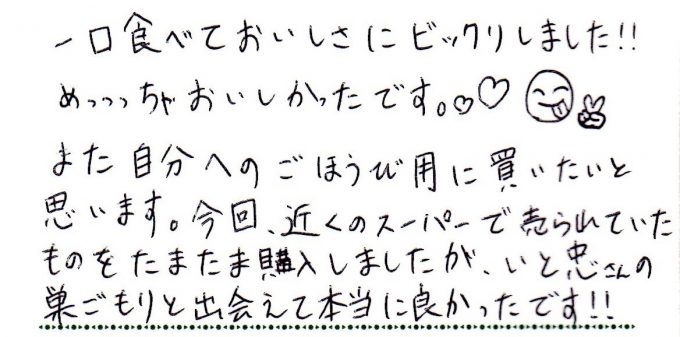 一口食べておいしさにビックリしました!!
めっっっちゃおいしかったです。♡♡
また自分へのごほうび用に買いたいと
思います。今回、近くのスーパーで売られていた
ものをたまたま購入しましたが、いと忠さんの
巣ごもりと出会えて本当に良かったです!!